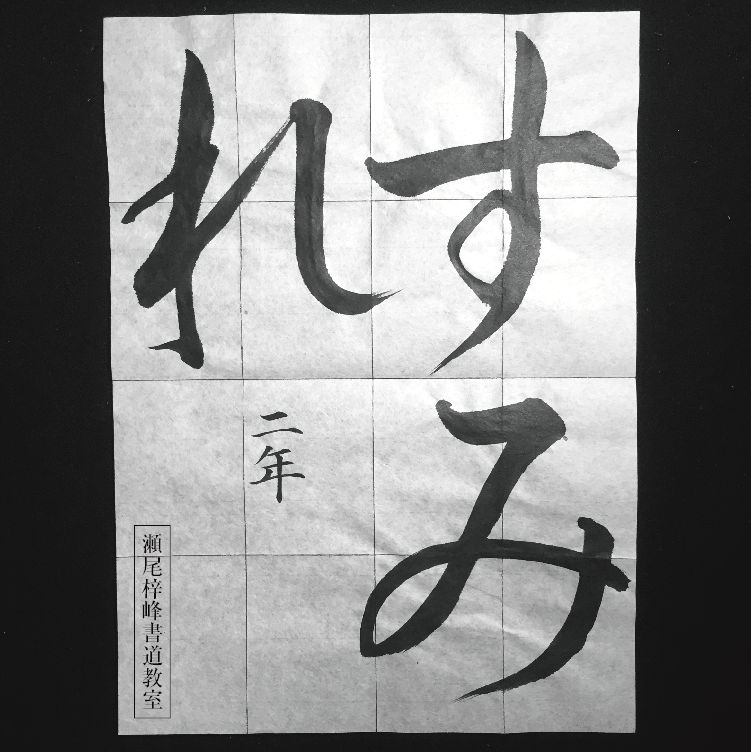 すみ
れ
二年
瀬尾梓峰書道教室